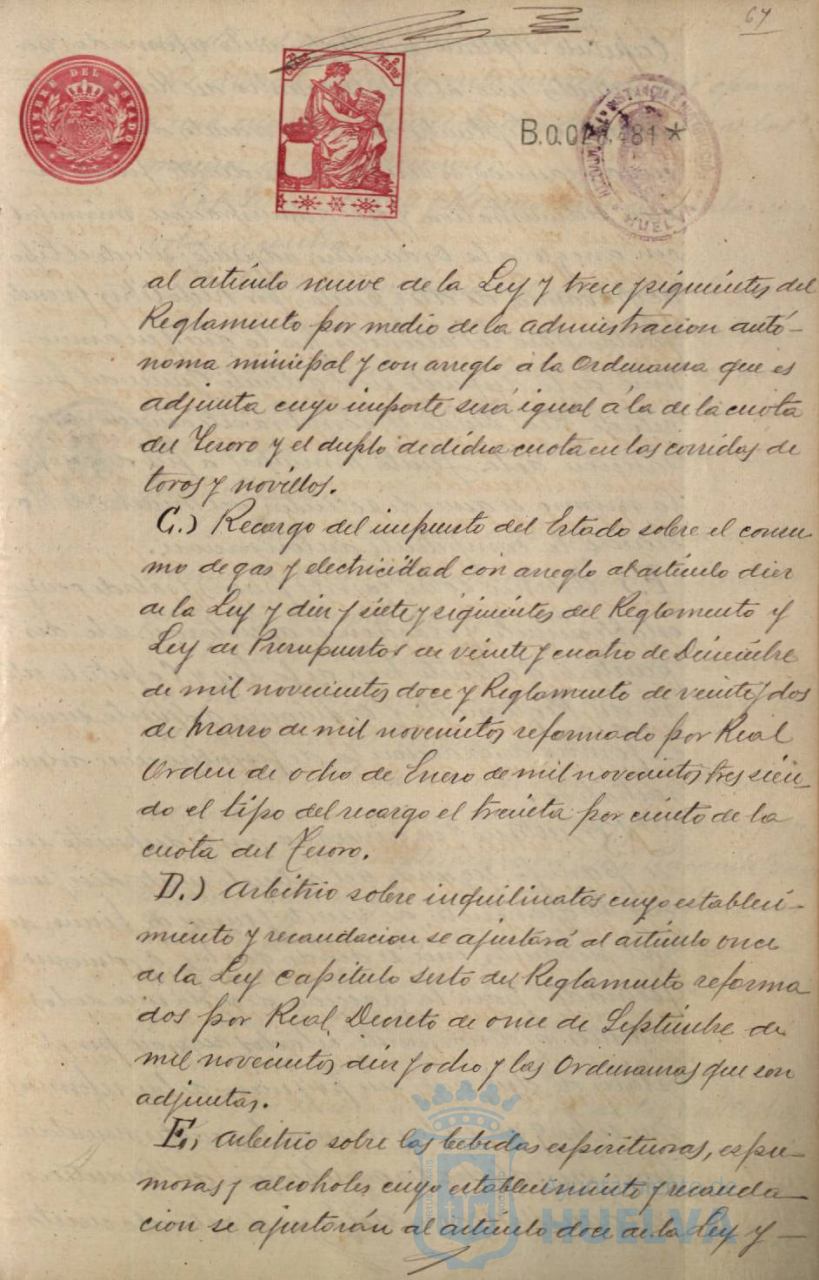 67
TIMBRE DEL ESTADO
B.0.0
481 *
HUELVA
al artículo nueve de la Ley y trece y siguientes del
Reglamento por medio de la administracion autó-
noma municipal y con arreglo á la Ordenanza que es
adjunta cuyo importe será igual á la de la cuota
del Tesoro y el duplo de dicha cuota en las corridas de
toros y novillos.
C.) Recargo del impuesto del Estado sobre el consu
mo de gas y electricidad con arreglo al artículo diez
de la Ley y diez y siete y siguientes del Reglamento y
Ley de Presupuestos de veinte y cuatro de Diciembre
de mil novecientos doce y Reglamento de veinte y dos
de Marzo de mil novecientos reformado por Real
Orden de ocho de Enero de mil novecientos tres sien-
do el tipo del recargo el treinta por ciento de la
cuota del Tesoro.
D.) Arbitrio sobre inquilinatos cuyo estableci-
miento y recaudacion se ajustará al artículo once
de la Ley capitulo sesto del Reglamento reforma
dos por Real Decreto de once de Septiembre de
mil novecientos diez y ocho y las Ordenanzas que son
adjuntas.
E) Arbitrio sobre las bebidas espirituosas, espu-
mosas y alcoholes cuyo establecimiento y recauda
cion se ajustarán al artículo doce de la Ley y -
HUELVA